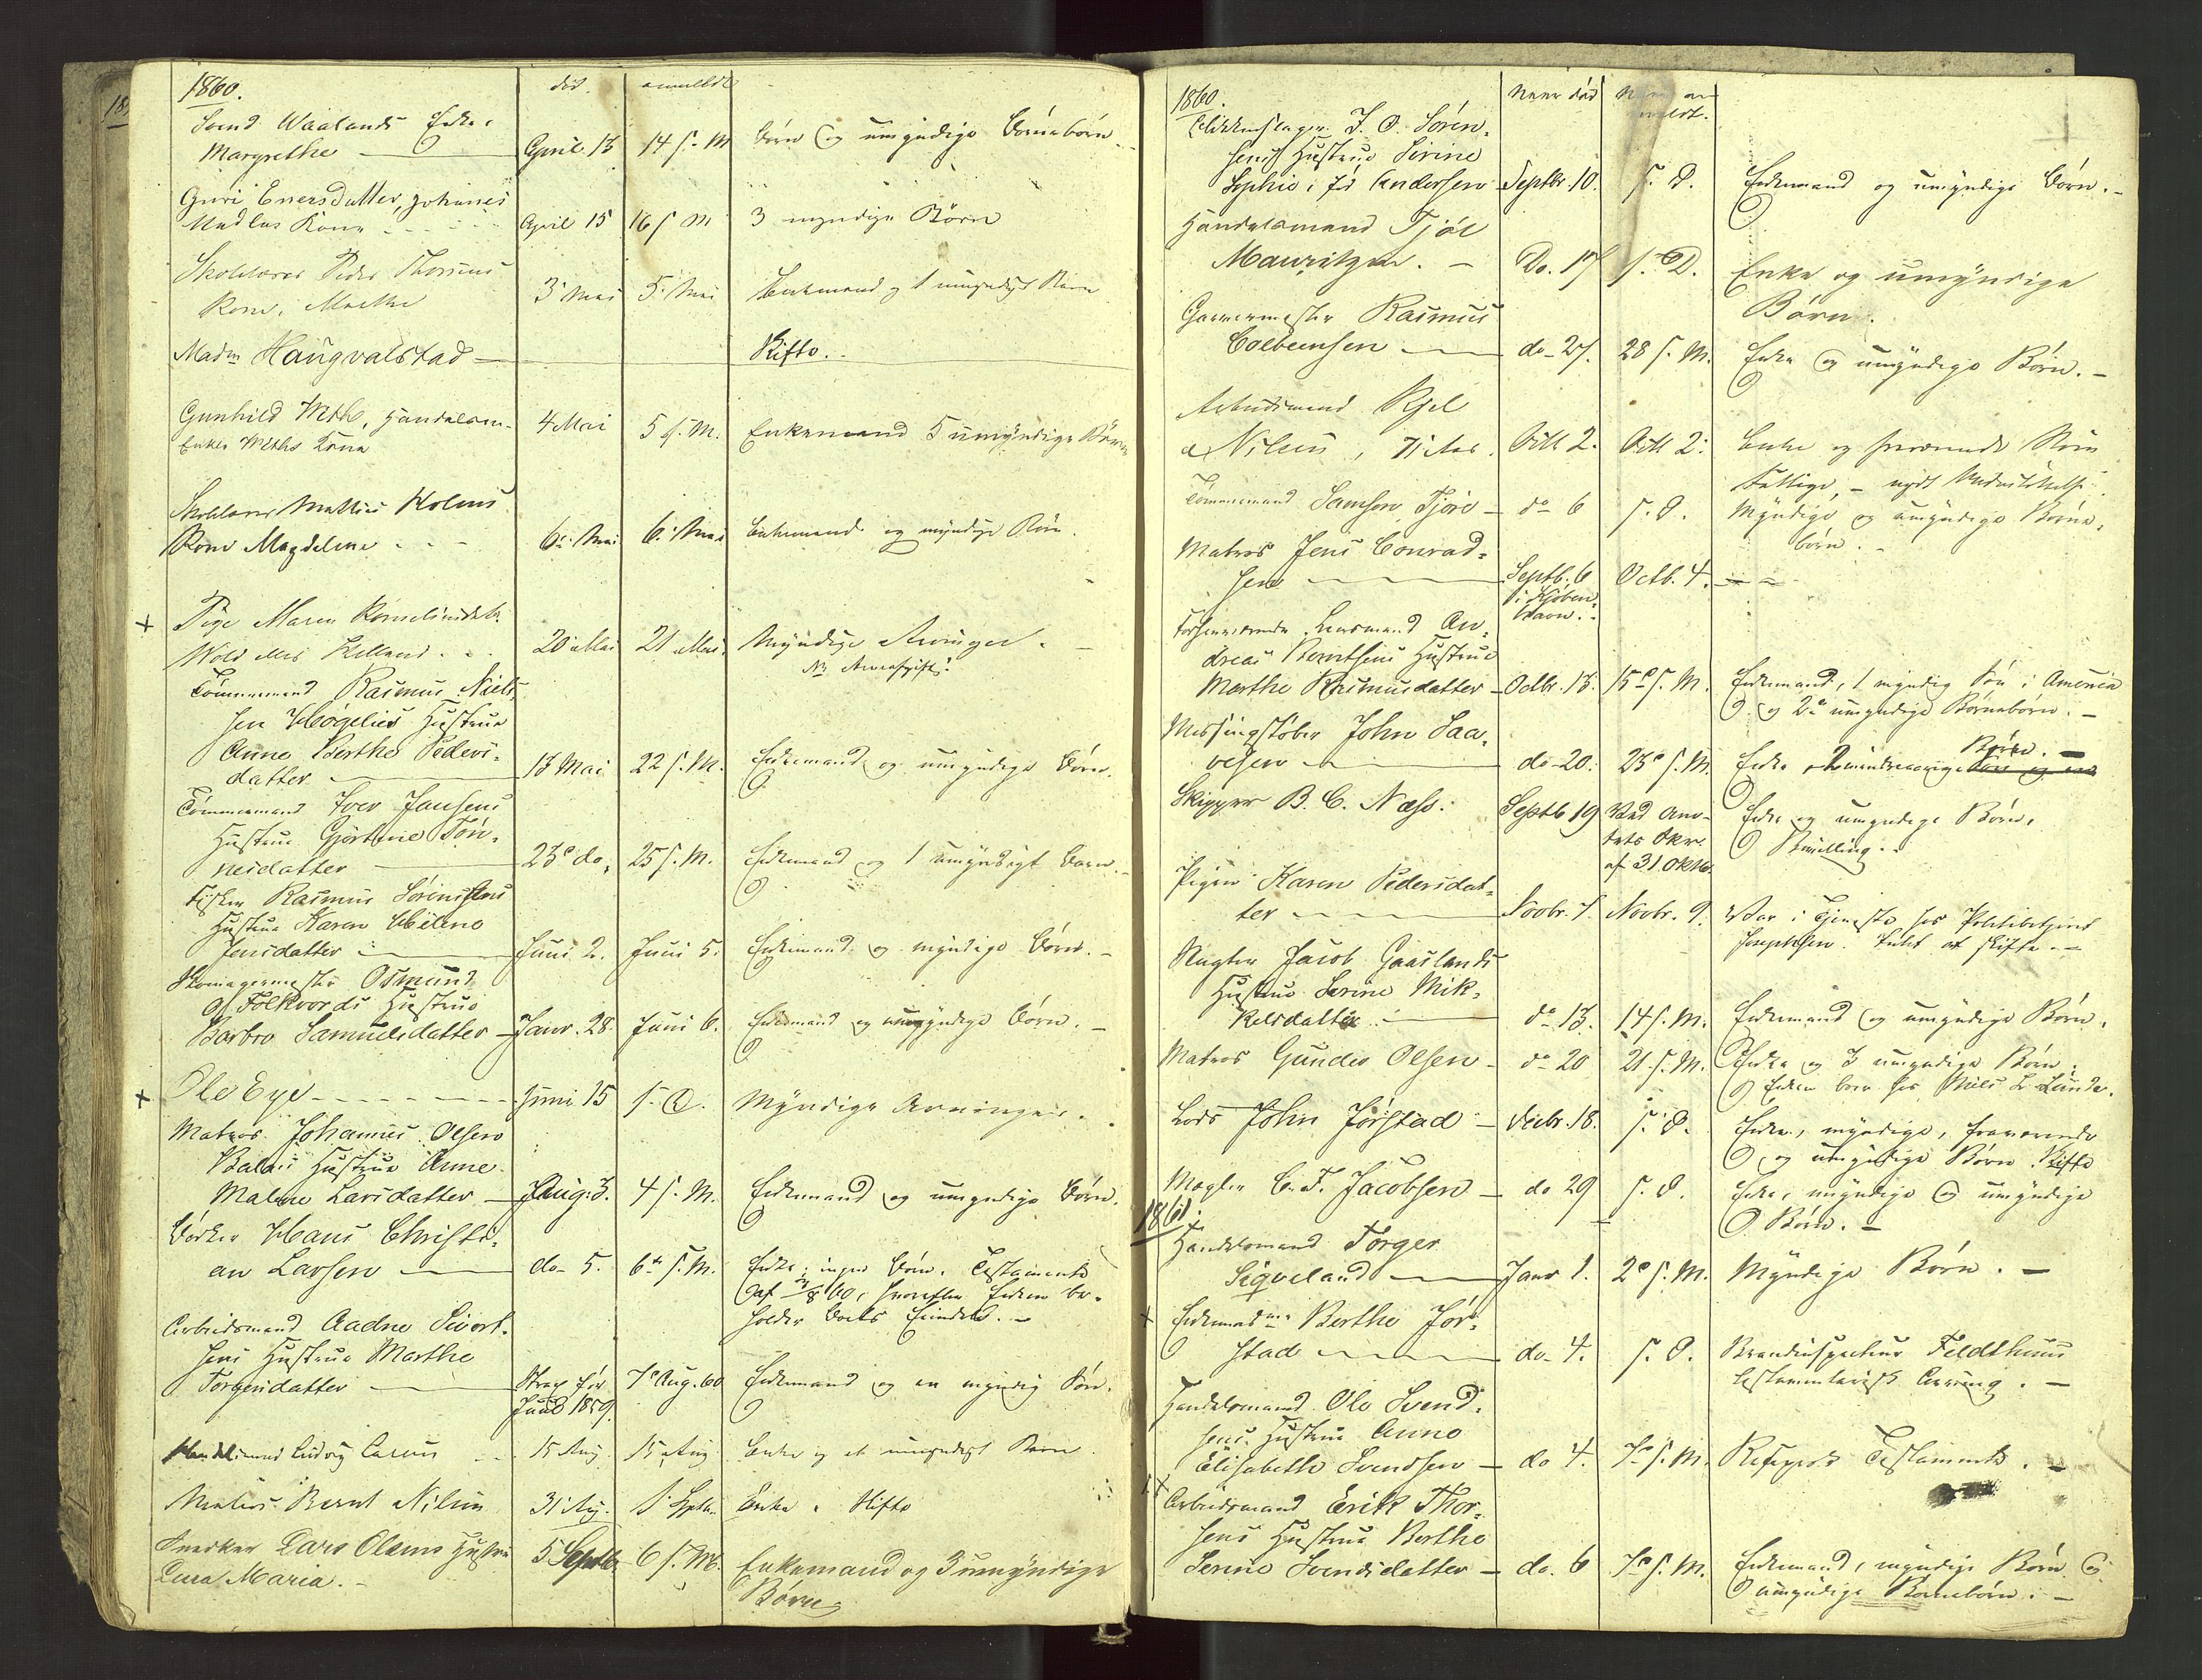 1860.
død. anmeldt
Svend Waalands Enke,
Margrethe — April 13 14 s. M. Børn og umyndige Børnebørn
Guri Enersdatter, Johanes
Madlas Kone - - - April 15 16 s M 3 myndige Børn
Skolelærer Peder Thorsens
Kone, Marthe 3 Mai 5 Mai Enkemand og 1 umyndigt Barn
Madm Haugvalstad — Skifte.
Gunhild Meth, Handelsm.
Enkes Meths Kone 4 Mai 5 s. M. Enkemand 5 umyndige Børn
Skolelærer Mathias Holms
Kone Magdalene - - - 6 Mai 6 Mai Enkemand og myndige Børn.
+ Pige Maren Cornelius datter
Wold eller Helland . . 20 Mai 21 Mai. Myndige Arvinger. —
NB Arveafgift!
Tømmermand Rasmus Niel-
sen Høgelies Hustrue
Anne Berthe Peders-
datter — 13 Mai 22 s. M. Enkemand og umyndige Børn.
Tømmermand Iver Jansens
Hustrue Gjørtine Tøn-
nesdatter — 23 do. 25 s. M. Enkemand og 1 umyndigt Barn.
Fisker Rasmus Sørensens
Hustrue Karen Helene
Jensdatter — Juni 2. Juni 5. Enkemand og myndige Børn. —
Skomagermester Osmund
Folkvords Hustrue
Barbro Samuelsdatter — Janr. 28. Juni 6. Enkemand og umyndige Børn. —
+ Ole Eye - - - - - - Juni 15 s. D. Myndige Arvinger.
Matros Johannes Olsen
Hustrue Anne
Malene Larsdatter — Aug. 3. 4 s. M. Enkemand og umyndige Børn.
Bødker Hans Christi-
an Larsen — do 5. 6 s. M. Enke; ingen Børn. Testamente
af 60, hvorefter Enken be-
holder Boets Eiendele. —
Arbeidsmand Aadne Sivert-
sens Hustrue Marthe
Torgersdatter — Strax før
Juul 1859. 7 Aug. 60 Enkemand og en myndig Søn.
Handelsmand Ludvig Larsen - - 15 Aug 15 Aug. Enke og et umyndigt Barn
Matros Bernt Nilsen 31 Aug. 1 Septb. Enke. Skifte
Snedker Lars Olsens Hustru 5 Septb 6 s. M. Enkemand og 3 umyndige
Maria. - Børn
1860.
Naar død Naar an-
meldt.
Blikkenslager J. O. Søren-
sens Hustrue Serine
Sophie, fød Andersen — Septbr. 10. s. D. Enkemand og umyndige Børn. -
Handelsmand Tjøl
Mauritzen. — Do. 17 s. D. Enke og umyndige
Børn.
Garvermester Rasmus
Colbensen — do 27. 28 s. M. Enke og umyndige Børn. —
Arbeidsmand Kjel
Nilsen, 71 Aar. Octb 2. Octb 2. Enke og fraværende Børn
Fattige, - nydt Understøttelse.
Tømmermand Samson Tjøre — do 6 s. D. Myndige og umyndige Børne-
børn. -
Matros Jens Conrad-
sen — Septb. 6
i Kjøben-
havn. - Octb. 4. — -
Forhenværende Lensmand An-
dreas Berntsens Hustrue
Marthe Rasmusdatter — Octbr. 13. 15 s. M. Enkemand, 1 myndig Søn i Amerika
og 2 umyndige Børnebørn. —
Messingstøber John Saa-
vesen — do 20. 23 s. M. Enke 2 mindreaarige Børn. —
Skipper B. C. Næss. Septb 19 Ved Am-
tets Skr.
af 31 Oktb. Enke og umyndige Børn.
Pigen Karen Pedersdat-
ter — Novbr. 7. Novbr. 9. Var i Tjeneste hos Politibetjent
Josephsen. Intet at skifte. —
Slagter Jacob Gaaslands
Hustrue Serine Mik-
kelsdatter — do 13. 14 s. M. Enkemand og umyndige Børn.
Matros Gunder Olsen — do 20 21. s. M. Enke og 3 umyndige Børn;
Enken boer hos Niels L. Lunde.
Lods John Jørstad — Decbr. 18. s. D. Enke, myndige, fraværende
og umyndige Børn. Skifte
Mægler C. F. Jacobsen — do 29 s. D. Enke, myndige og umyndige
Børn. —
1861.
Handelsmand Torger
Siqveland — Janr 1. 2 s. M. Myndige Børn. —
+ Enkemadme Berthe Jør-
stad — do 4. s. D. Brandinspecteur Feldthuus
testamentarisk Arving. —
Handelsmand Ole Svend-
sens Hustrue Anne
Elisabeth Svendsen — do 4. 7 s. M. Testamente. —
+ Arbeidsmand Erik Thor-
sens Hustrue Berthe
Serine Svendsdatter — do. 6 7 s. M. Enkemand, myndige Børn og
umyndige Børnebørn. —